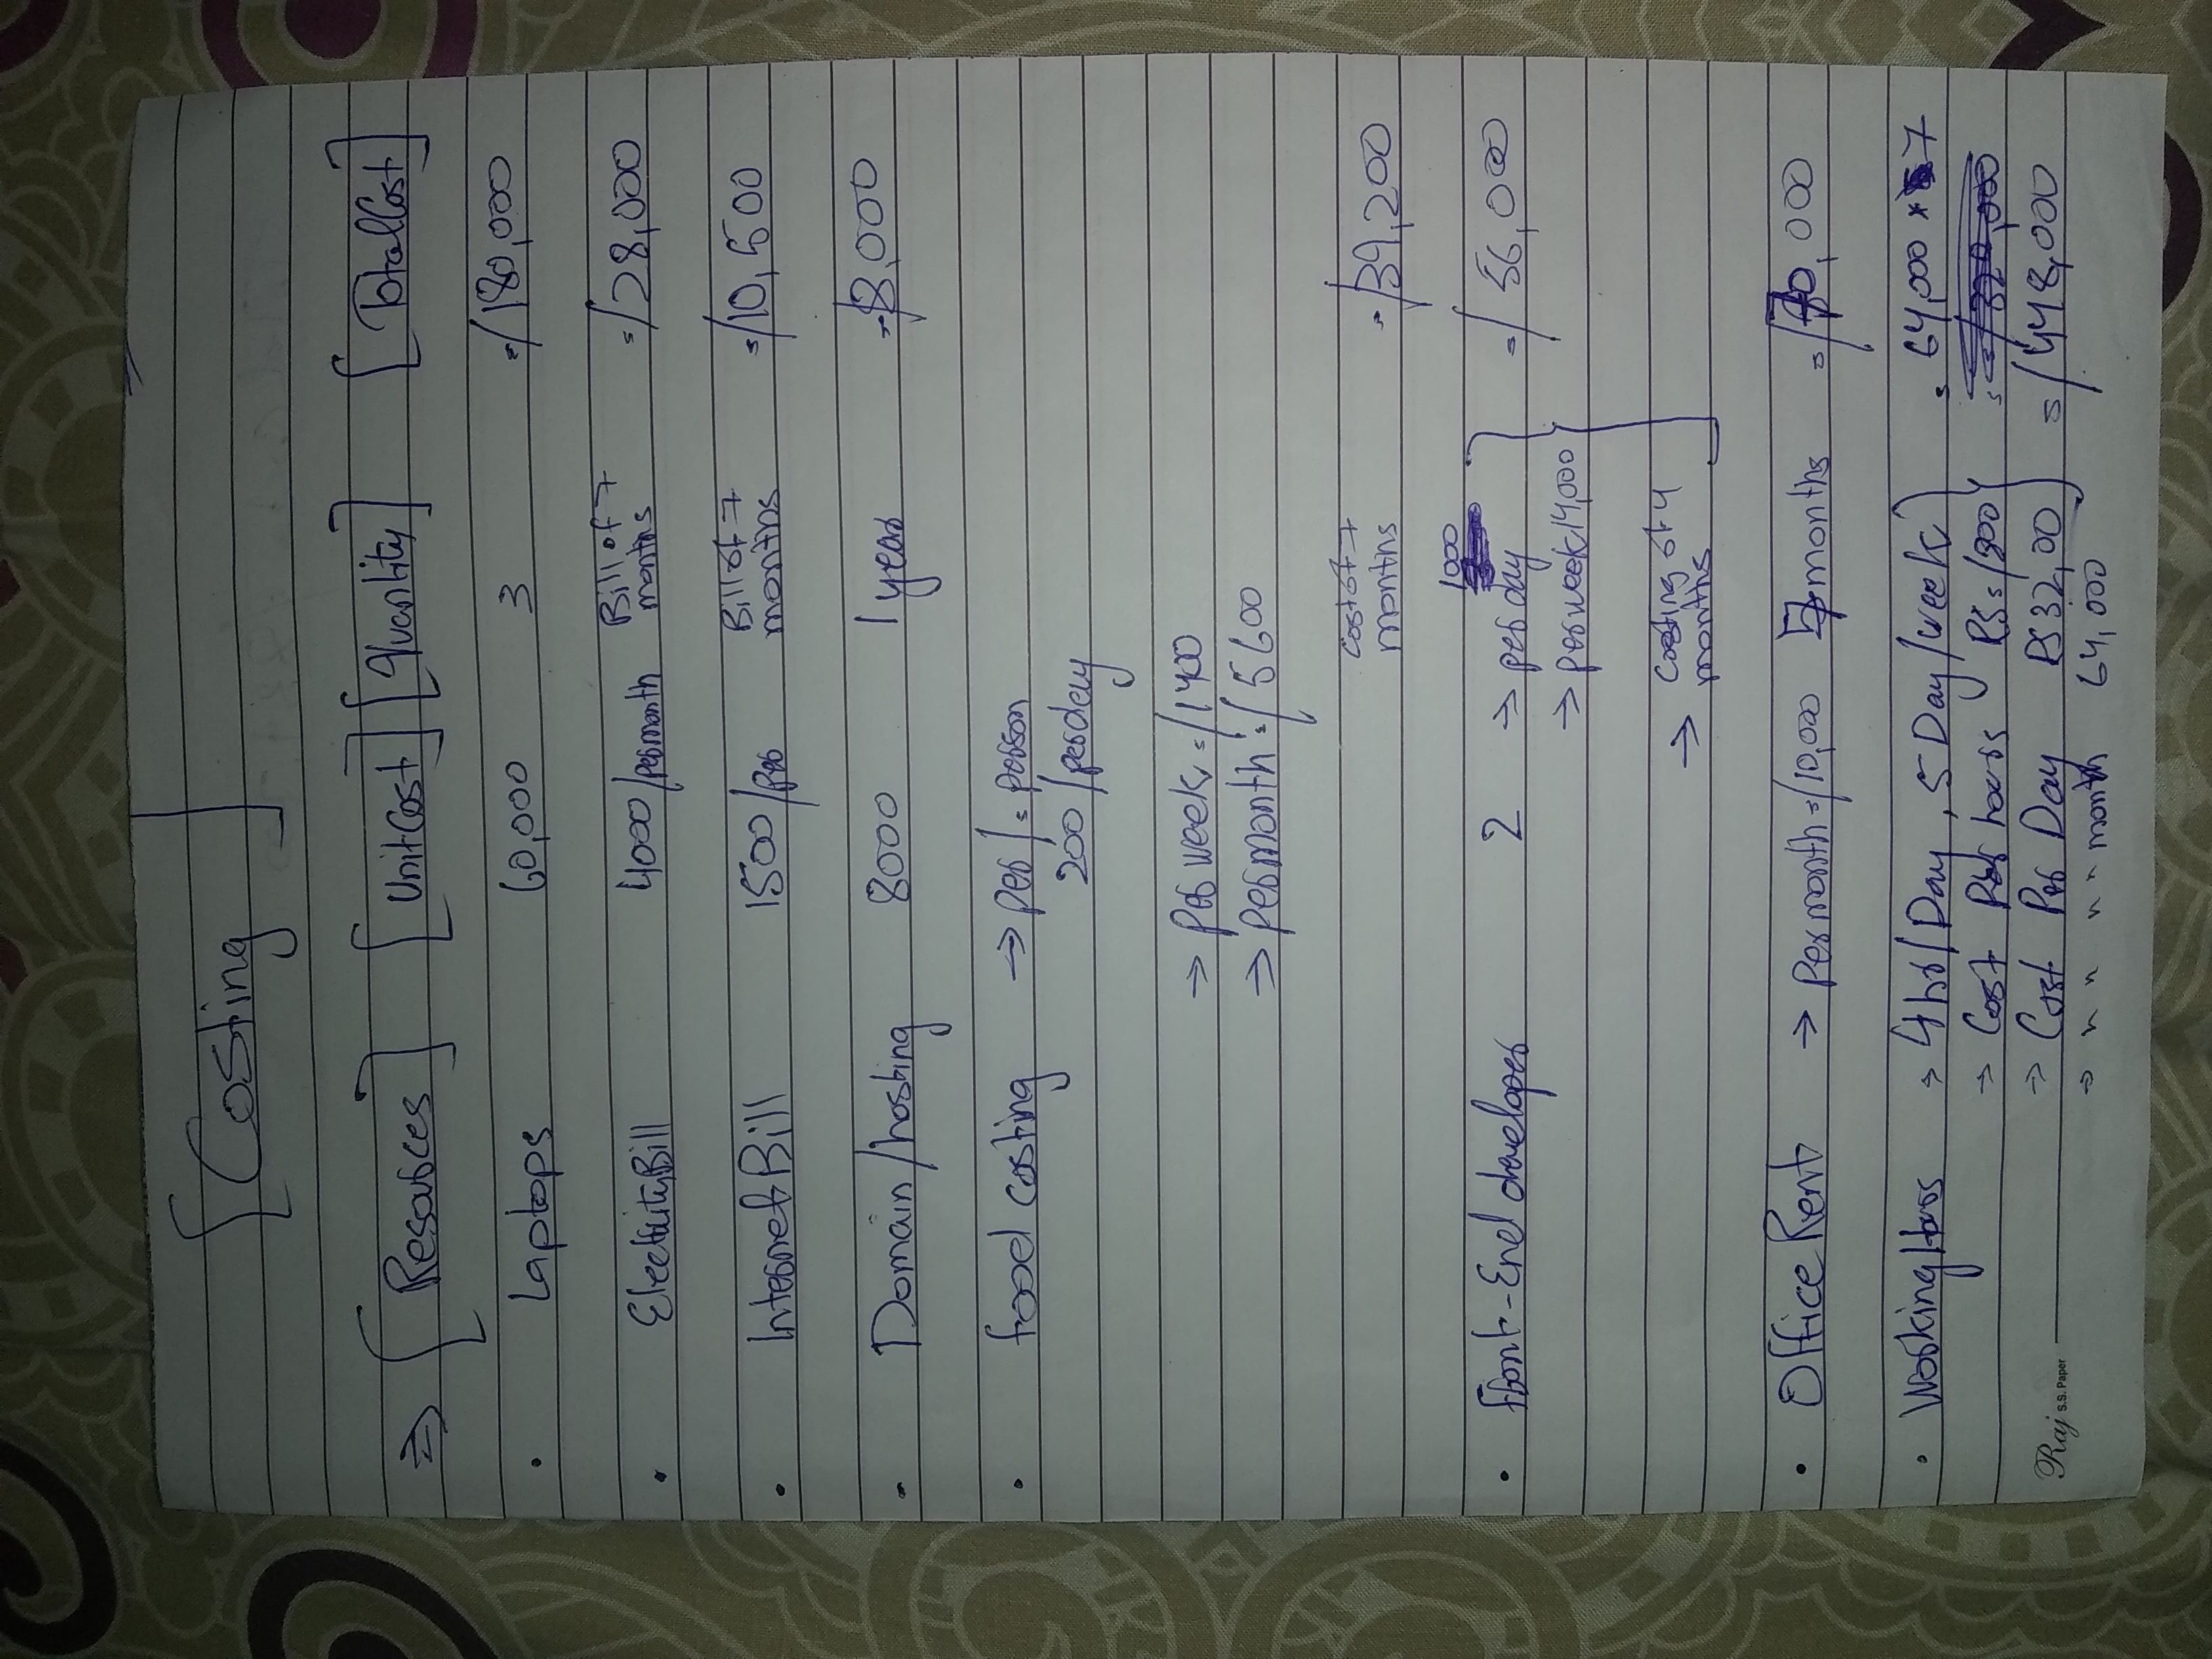 [Costing]
⇒ [Resources] [Unit Cost] [Quantity] [Total Cost]
• Laptops 60,000 3 =/180,000
• Electricity Bill 4000/per month Bill of 7 months =/28,000
• Internet Bill 1500/per Bill of 7 months =/10,500
• Domain/hosting 8000 1 year =/8,000
• food costing → per/= person
200/perday
→ per week =/1400
→ per month =/5600
cost of 7 months =/39,200
• Front-End developer 2 → 1000 per day =/56,000
→ per week 14,000
→ costing of 4 months
• Office Rent → Per month =/10,000 7 months =/70,000
• Working Hours → 4hrs/Day, 5 Day/week) = 64,000 * 7
→ Cost Per hours RS=/800
→ Cost Per Day RS 32,00 =/448,000
→ " " " month 64,000
Raj S.S. Paper